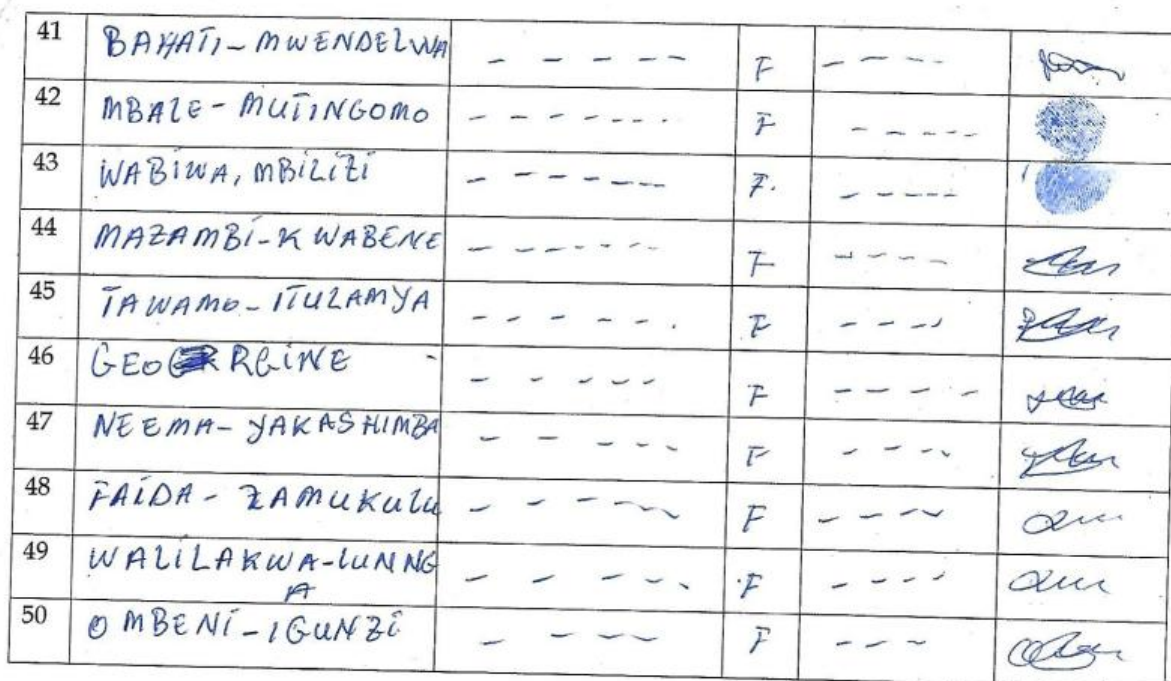 41 BAHATI-MWENDELWA - - - - - F - - - -
42 MBALE-MUTINGOMO - - - - - - - F - - - - -
43 WABIWA, MBILIZI - - - - - - F. - - - - -
44 MAZAMBI-KWABENE - - - - - - - F - - - -
45 TAWAMO-ITULAMYA - - - - - . F - - - -
46 GEORGINE - - - - - - F - - - - -
47 NEEMA-YAKASHIMBA - - - - - F - - - -
48 FAIDA-ZAMUKULU - - - - - F - - - -
49 WALILAKWA-LUNNG
A - - - - - F - - - -
50 OMBENI-IGUNZI - - - - F - - -